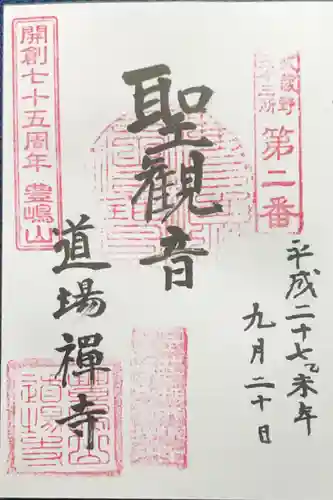 武蔵野
三十三所
第二番
平成二十七乙未年
九月二十日
聖観音
道場禪寺
開創七十五周年 豊嶋山
道場寺